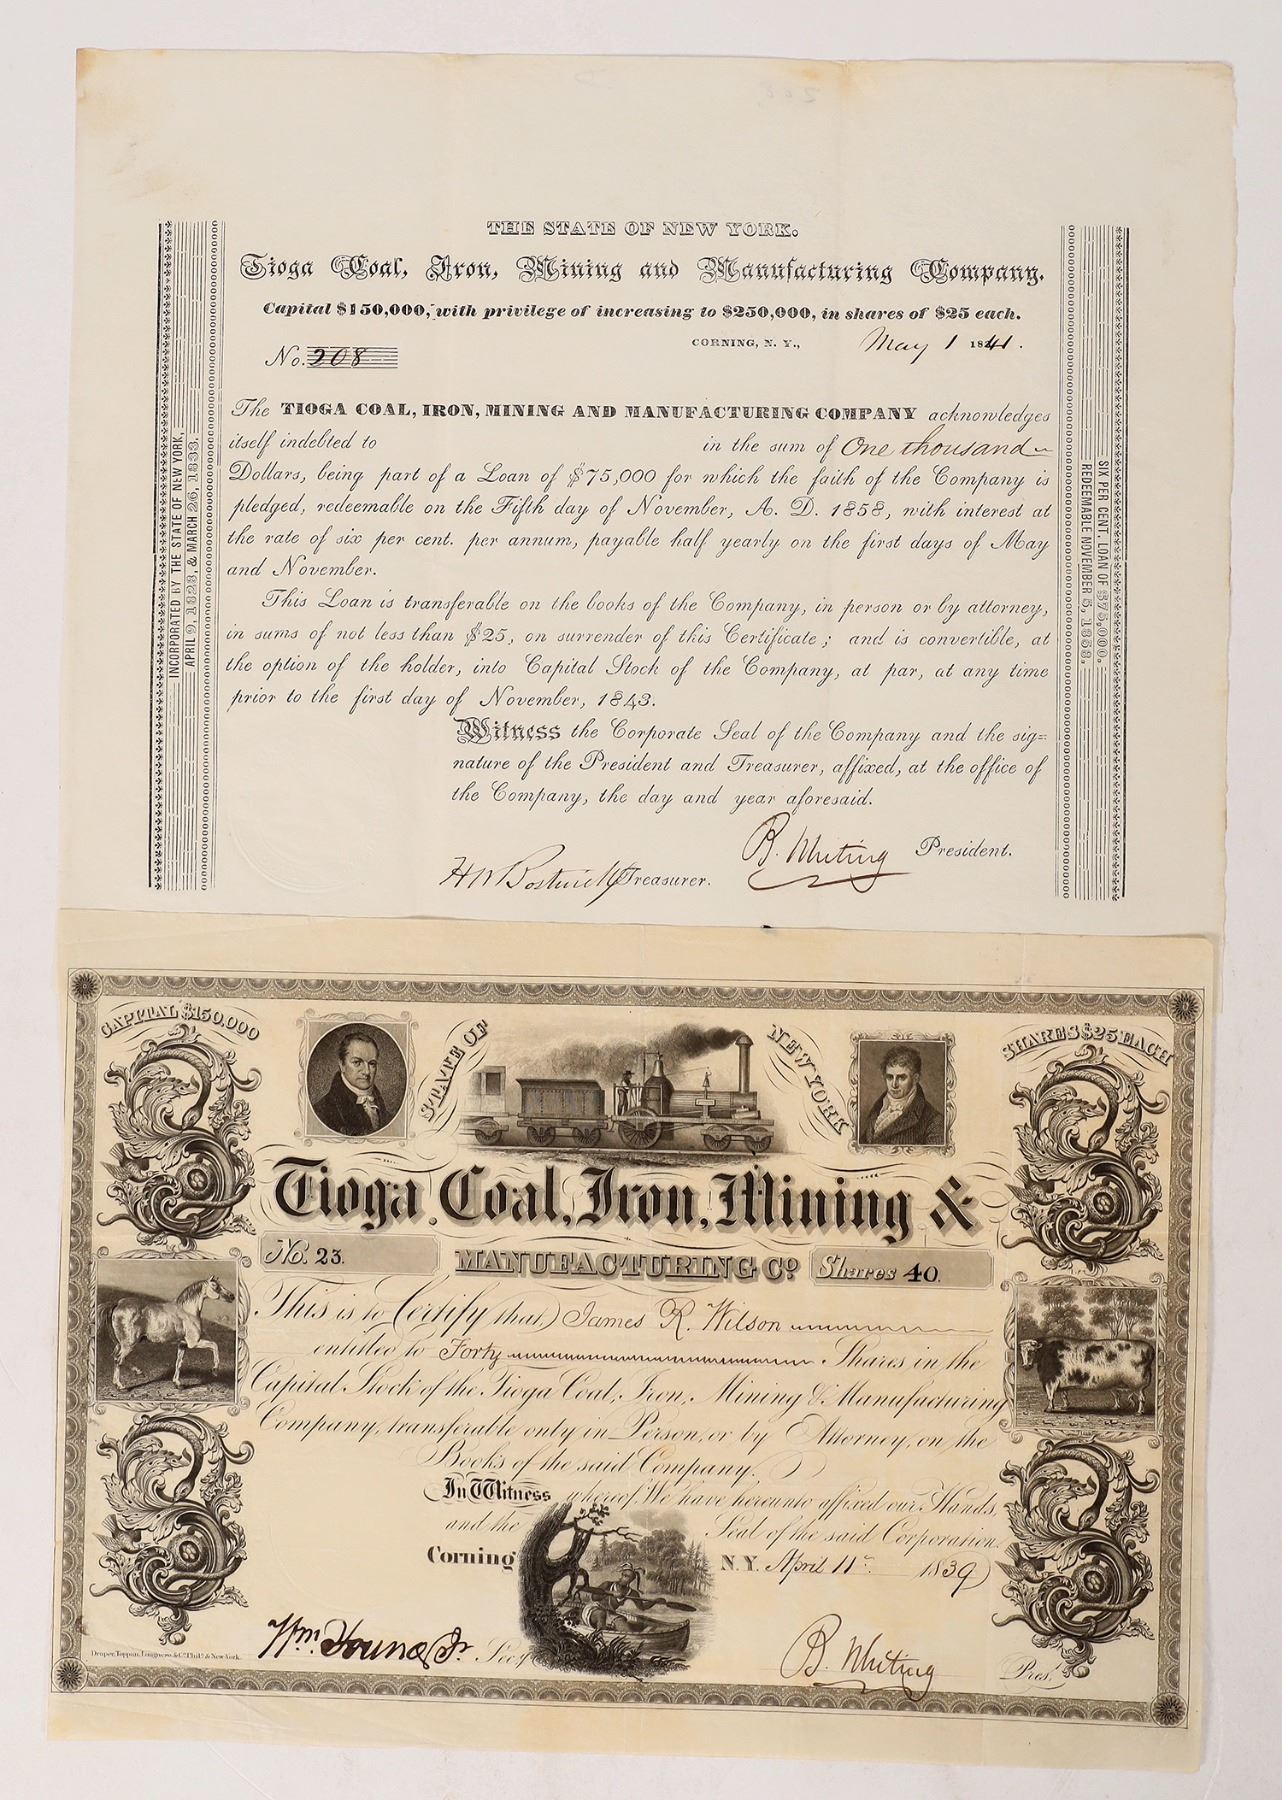 THE STATE OF NEW YORK.
Tioga Coal, Iron, Mining and Manufacturing Company.
Capital $150,000, with privilege of increasing to $250,000, in shares of $25 each.
CORNING, N. Y., May 1 1841.
No. 208
The TIOGA COAL, IRON, MINING AND MANUFACTURING COMPANY acknowledges
itself indebted to in the sum of One thousand
Dollars, being part of a Loan of $75,000 for which the faith of the Company is
pledged, redeemable on the Fifth day of November, A. D. 1858, with interest at
the rate of six per cent. per annum, payable half yearly on the first days of May
and November.
This Loan is transferable on the books of the Company, in person or by attorney,
in sums of not less than $25, on surrender of this Certificate; and is convertible, at
the option of the holder, into Capital Stock of the Company, at par, at any time
prior to the first day of November, 1843.
Witness the Corporate Seal of the Company and the sig=
nature of the President and Treasurer, affixed, at the office of
the Company, the day and year aforesaid.
B. Whiting President.
H W Bostwick Treasurer.
INCORPORATED BY THE STATE OF NEW YORK,
APRIL 9, 1828, & MARCH 26, 1833.
SIX PER CENT. LOAN OF $75,000.
REDEEMABLE NOVEMBER 5, 1858.
CAPITAL $150,000
STATE OF
NEW YORK
SHARES $25 EACH
Tioga Coal, Iron, Mining &
No. 23.
MANUFACTURING Co.
Shares 40.
This is to Certify that James R. Wilson
entitled to Forty Shares in the
Capital Stock of the Tioga Coal, Iron, Mining & Manufacturing
Company, transferable only in Person, or by Attorney, on the
Books of the said Company.
In Witness whereof, We have hereunto affixed our Hands,
and the Seal of the said Corporation.
Corning N.Y. April 11 1839
Wm. Young Jr. Secy
B. Whiting Pres.t
Draper, Toppan, Longacre & Co. Phila. & New York.